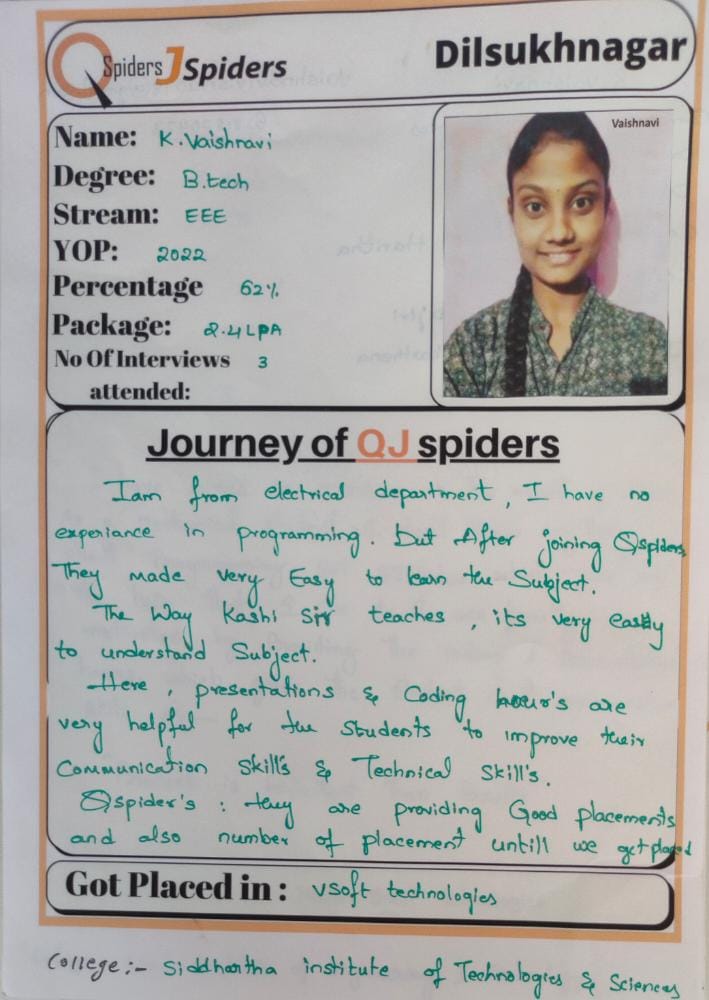 QSpiders JSpiders
Dilsukhnagar
Vaishnavi
Name: K.Vaishnavi
Degree: B.tech
Stream: EEE
YOP: 2022
Percentage 62%
Package: 2.4 LPA
No Of Interviews 3
attended:
Journey of QJ spiders
Iam from electrical department, I have no
experiance in programming. But After joining Qspiders,
They made very Easy to learn the Subject.
The Way Kashi Sir teaches, its very easily
to understand Subject.
Here, presentations & Coding hour's are
very helpful for the Students to improve their
Communication Skill's & Technical Skill's.
Qspider's : they are providing Good placements
and also number of placement untill we get placed
Got Placed in : vsoft technologies
College :- Siddhartha institute of Technologies & Sciences